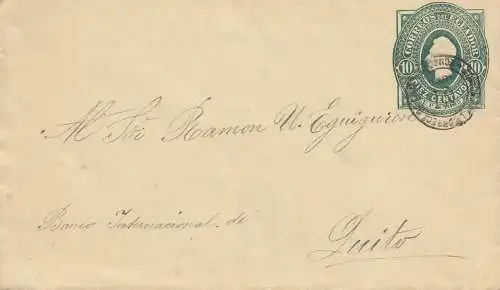 CORREOS DEL ECUADOR
10 10
DIEZ CENTAVOS
Al Sór Ramon U. Eguiguren
Banco Internacional de
Quito